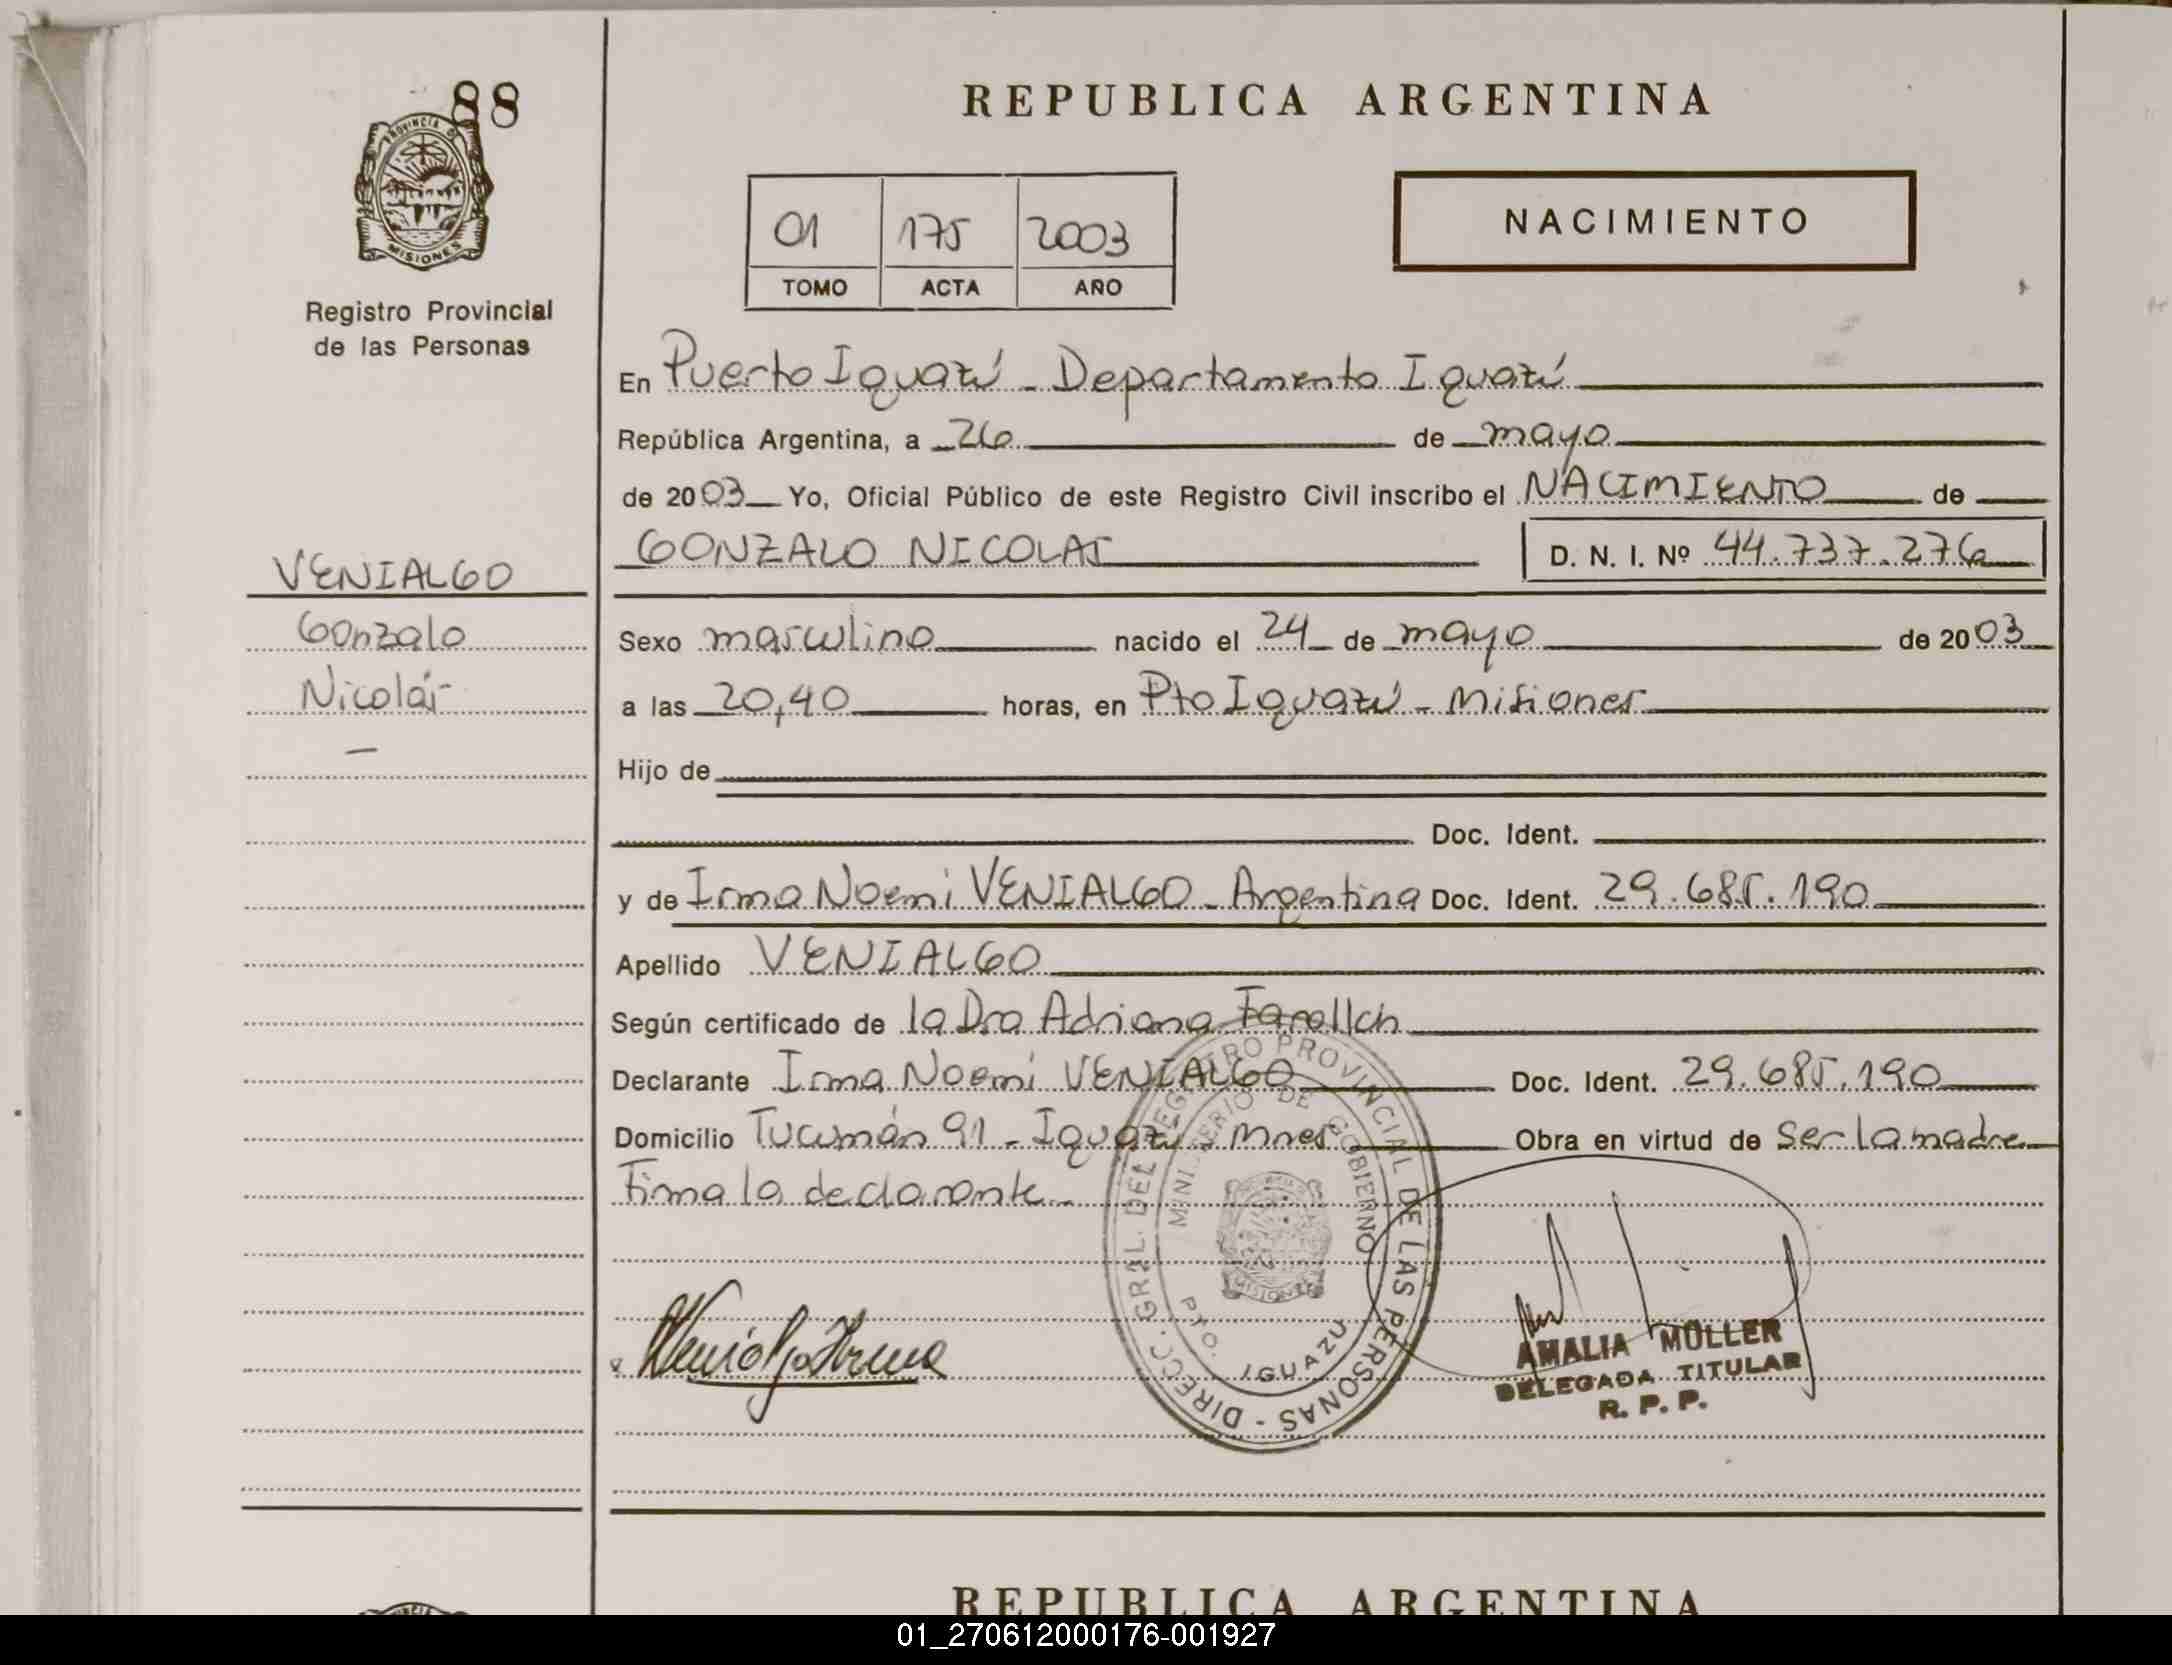 88
PROVINCIA DE
MISIONES
Registro Provincial
de las Personas
VENIALGO
Gonzalo
Nicolás
REPUBLICA ARGENTINA
01 175 2003
TOMO ACTA AÑO
NACIMIENTO
En Puerto Iguazú - Departamento Iguazú
República Argentina, a 26 de mayo
de 2003 Yo, Oficial Público de este Registro Civil inscribo el NACIMIENTO de
GONZALO NICOLAS D. N. I. Nº 44.737.276
Sexo masculino nacido el 24 de mayo de 2003
a las 20,40 horas, en Pto Iguazú - Misiones
Hijo de
Doc. Ident.
y de Irma Noemi VENIALGO - Argentina Doc. Ident. 29.685.190
Apellido VENIALGO
Según certificado de la Dra Adriana
Declarante Irma Noemi VENIALGO Doc. Ident. 29.685.190
Domicilio Tucumán 91 - Iguazú - Mnes Obra en virtud de ser la madre
Firma la declarante -
DIRECC. GRAL. DEL REGISTRO PROVINCIAL DE LAS PERSONAS -
MINISTERIO DE GOBIERNO
MISIONES
PTO. IGUAZU
Venialgo Irma
AMALIA MULLER
DELEGADA TITULAR
R. P. P.
REPUBLICA ARGENTINA
01_270612000176-001927